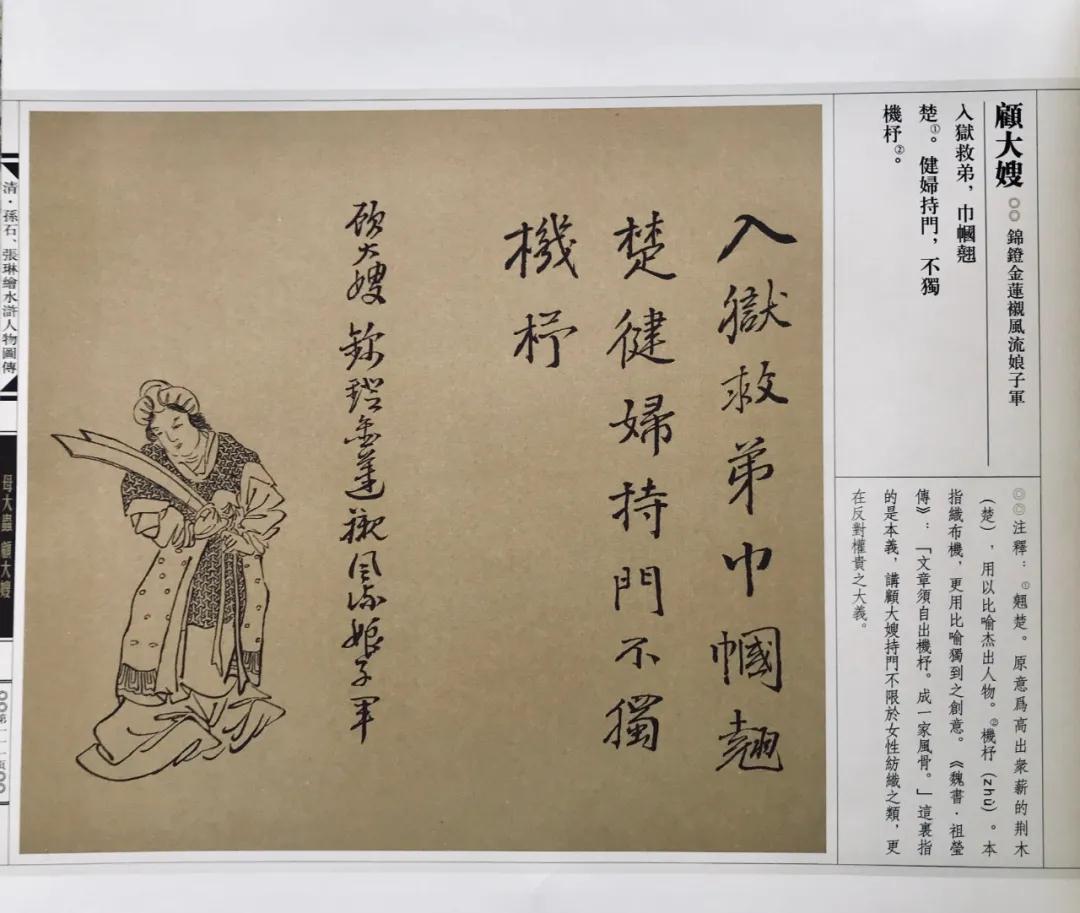 顧大嫂 ◎◎ 錦鐙金蓮襯風流娘子軍
入獄救弟，巾幗翹
楚①。健婦持門，不獨
機杼②。
◎◎注釋：①翹楚。原意爲高出衆薪的荆木
（楚），用以比喻杰出人物。②機杼（zhù）。本
指織布機，更用比喻獨到之創意。《魏書·祖瑩
傳》：「文章須自出機杼。成一家風骨。」這裏指
的是本義，講顧大嫂持門不限於女性紡織之類，更
在反對權貴之大義。
入獄救弟巾幗翹
楚健婦持門不獨
機杼
顧大嫂 錦鐙金蓮襯風流娘子軍
清·孫石、張琳繪水滸人物圖傳
母大蟲 顧大嫂